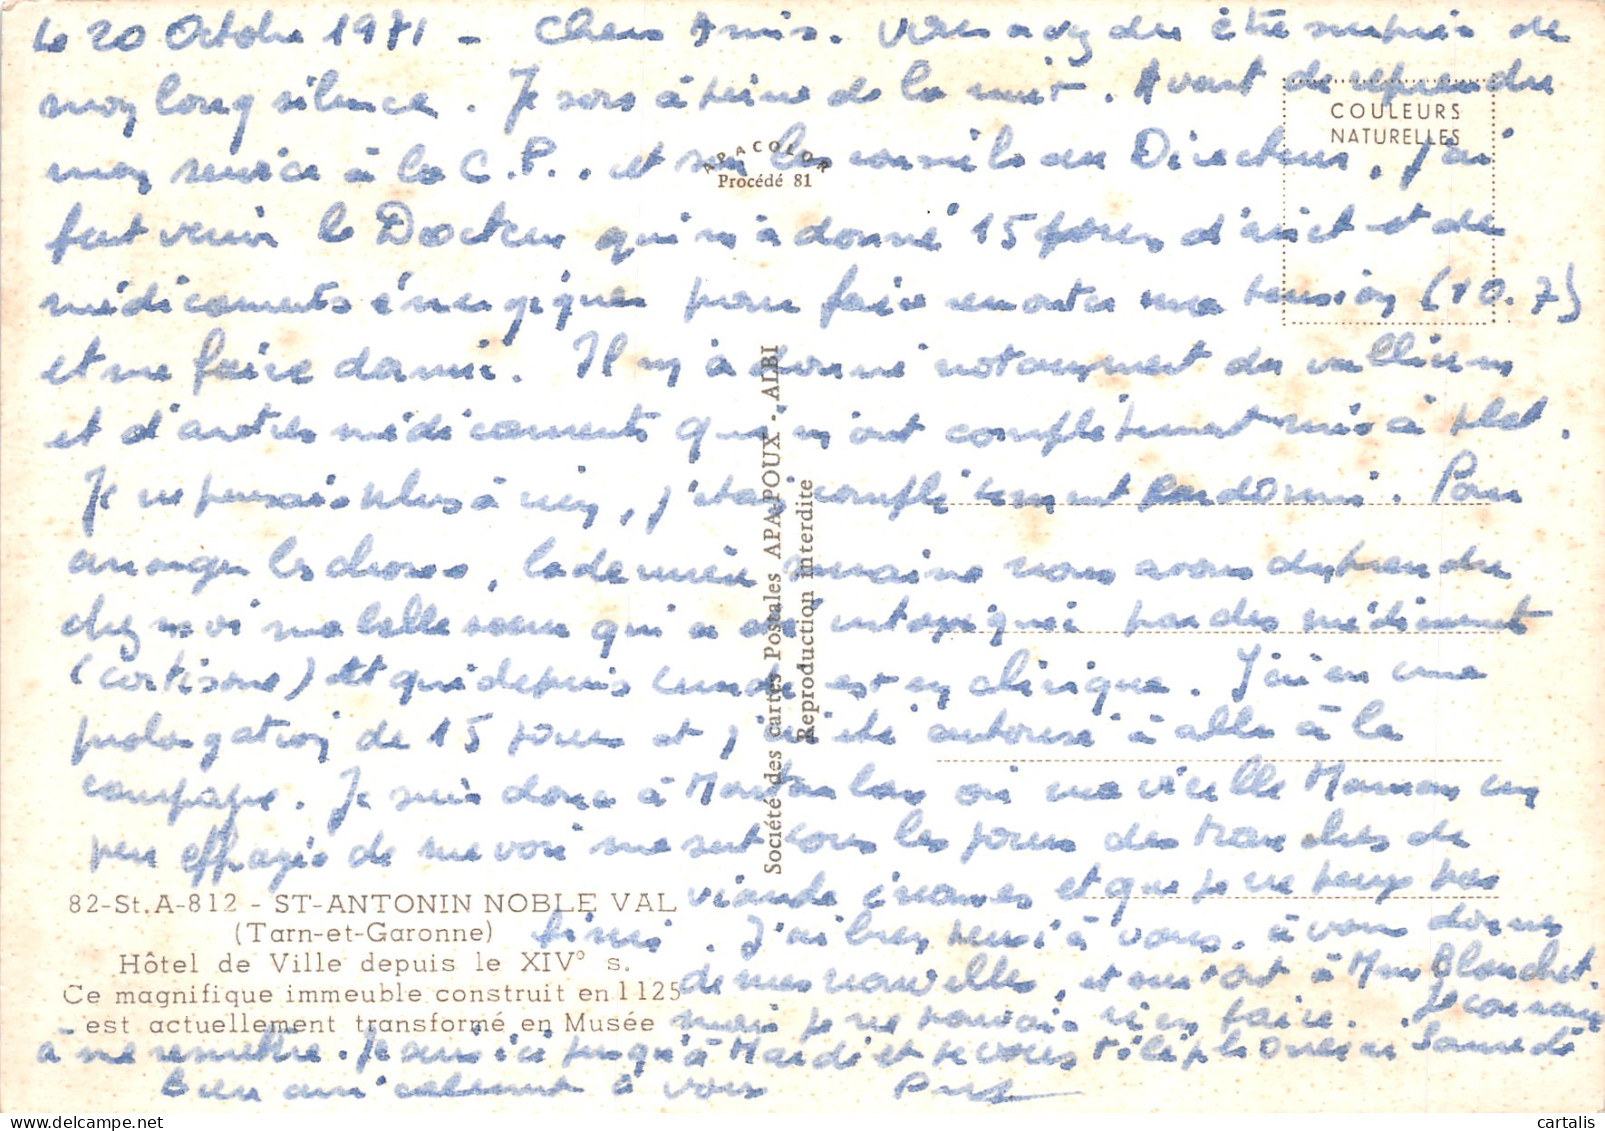 Le 20 Octobre 1971 - Chers Amis. Vous avez du être surpris de
mon long silence. Je sors à peine de la nuit. Avant de reprendre
mon service à la C.P., et sur les conseils du Directeur, j'ai
fait venir le Docteur qui m'a donné 15 jours d'arrêt et des
médicaments énergiques pour faire remonter ma tension (10.7)
et me faire dormir. Il m'a donné notamment du
et d'autres médicaments qui m'ont complètement mis à plat.
Je ne pensais plus à rien, j'étais complètement endormi. Pour
arranger les choses, la dernière semaine nous avons du prendre
chez moi ma belle soeur qui a été intoxiquée par des médicaments
(cortisone) et qui depuis lundi est en clinique. J'ai eu une
prolongation de 15 jours et j'ai été autorisé à aller à la
campagne. Je suis donc à Montauban où ma vieille Maman un
peu effrayée de me voir me sert tous les jours des tranches de
viande énormes et que je ne peux pas
finir. J'ai bien pensé à vous, à vous donner
de mes nouvelles, et surtout à Mme Blanchet.
mais je ne pouvais rien faire. Je commence
à me remettre. Je suis ici jusqu'à Mardi et je vous téléphonerai Samedi
Bien amicalement à vous
COULEURS
NATURELLES
APACOLOR
Procédé 81
Société des cartes Postales APA-POUX - ALBI
Reproduction interdite
82-St.A-812 - ST-ANTONIN NOBLE VAL
(Tarn-et-Garonne)
Hôtel de Ville depuis le XIV° s.
Ce magnifique immeuble construit en 1125
est actuellement transformé en Musée
cartalis